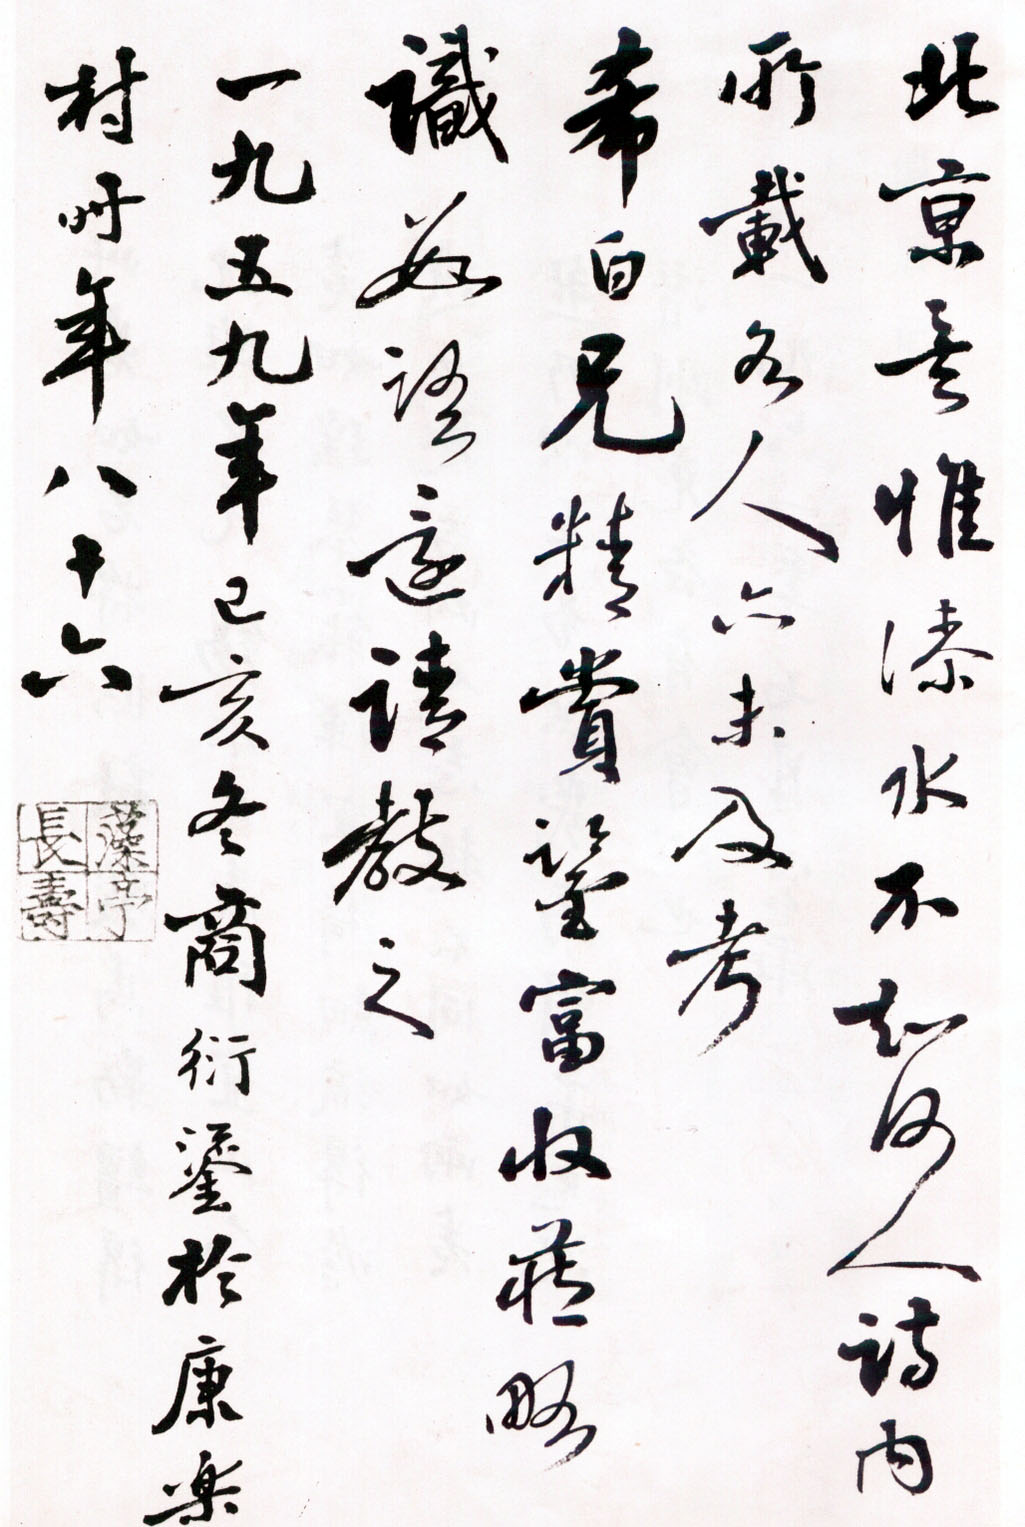 北京矣惟溱水不知何人詩内
所載各人亦未及考
希白兄精賞鑒富收藏略
識數語還請教之
一九五九年己亥冬商衍鎏於康楽
村时年八十六
藻亭
長壽